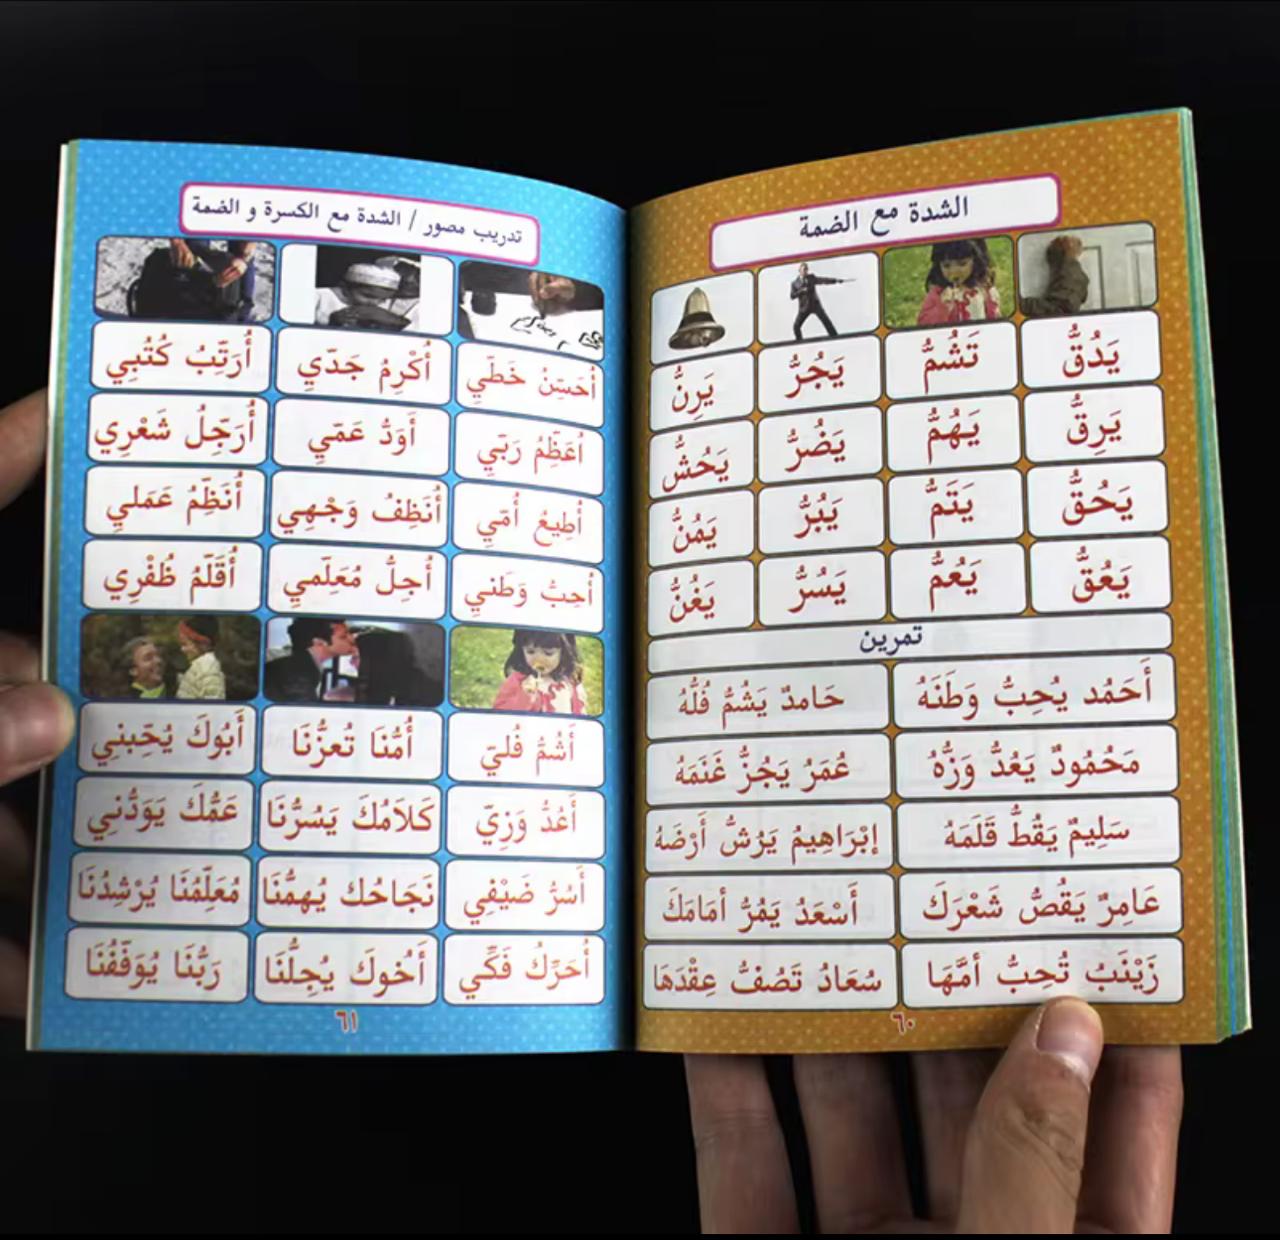 الشدة مع الضمة
يَدُقُّ تَشُمُّ يَجُرُّ يَرِنُّ
يَرِقُّ يَهُمُّ يَضُرُّ يَخُشُّ
يَحُقُّ يَتَمُّ يَبُرُّ يَمُنُّ
يَعُقُّ يَعُمُّ يَسُرُّ يَغُنُّ
تمرين
أَحَمُد يُحِبُّ وَطَنَهُ حَامدٌ يَشُمُّ فُلُّهُ
مَحُمُودٌ يَعُدُّ وَزَّهُ عُمَرُ يَجُزُّ غَنَمَهُ
سَلِيمٌ يَقُطُّ قَلَمَهُ إبْرَاهِيمُ يَرُشُّ أَرْضَهُ
عَامِرٌ يَقُصُّ شَعْرَكَ أَسْعَدُ يَمُرُّ أمَامَكَ
زَيْنَبُ تُحِبُّ أمَّهَا سُعَادُ تَصُفُّ عِقْدَهَا
٦٠
تدريب مصور / الشدة مع الكسرة و الضمة
أُحَسِّنُ خَطِّي أُكْرِمُ جَدِّي أُرَتِّبُ كُتُبِي
أُعَظِّمُ رَبِّي أَوَدُّ عَمِّي أُرَجِّلُ شَعْرِي
أُطِيعُ أُمِّي أُنَظِفُ وَجْهِي أُنَظِّمُ عَمَلي
أُحِبُّ وَطَني أُجِلُّ مُعَلِّمي أُقَلِّمُ ظُفْرِي
أَشُمُّ فُليِّ أُمُّنَا تُعزُّنَا أَبُوكَ يُحِّبنِي
أَعُدُّ وَزِيِّ كَلاَمُكَ يَسُرُّنَا عَمُّكَ يَوَدُّنِي
أَسُرُّ ضَيْفِي نَجَاحُك يُهمُّنَا مُعَلِّمُنَا يُرْشِدُنَا
أُحَرِّكُ فَكِّي أَخُوكَ يُجِلُّنَا رَبُّنَا يُوَفِّقُنَا
٦١